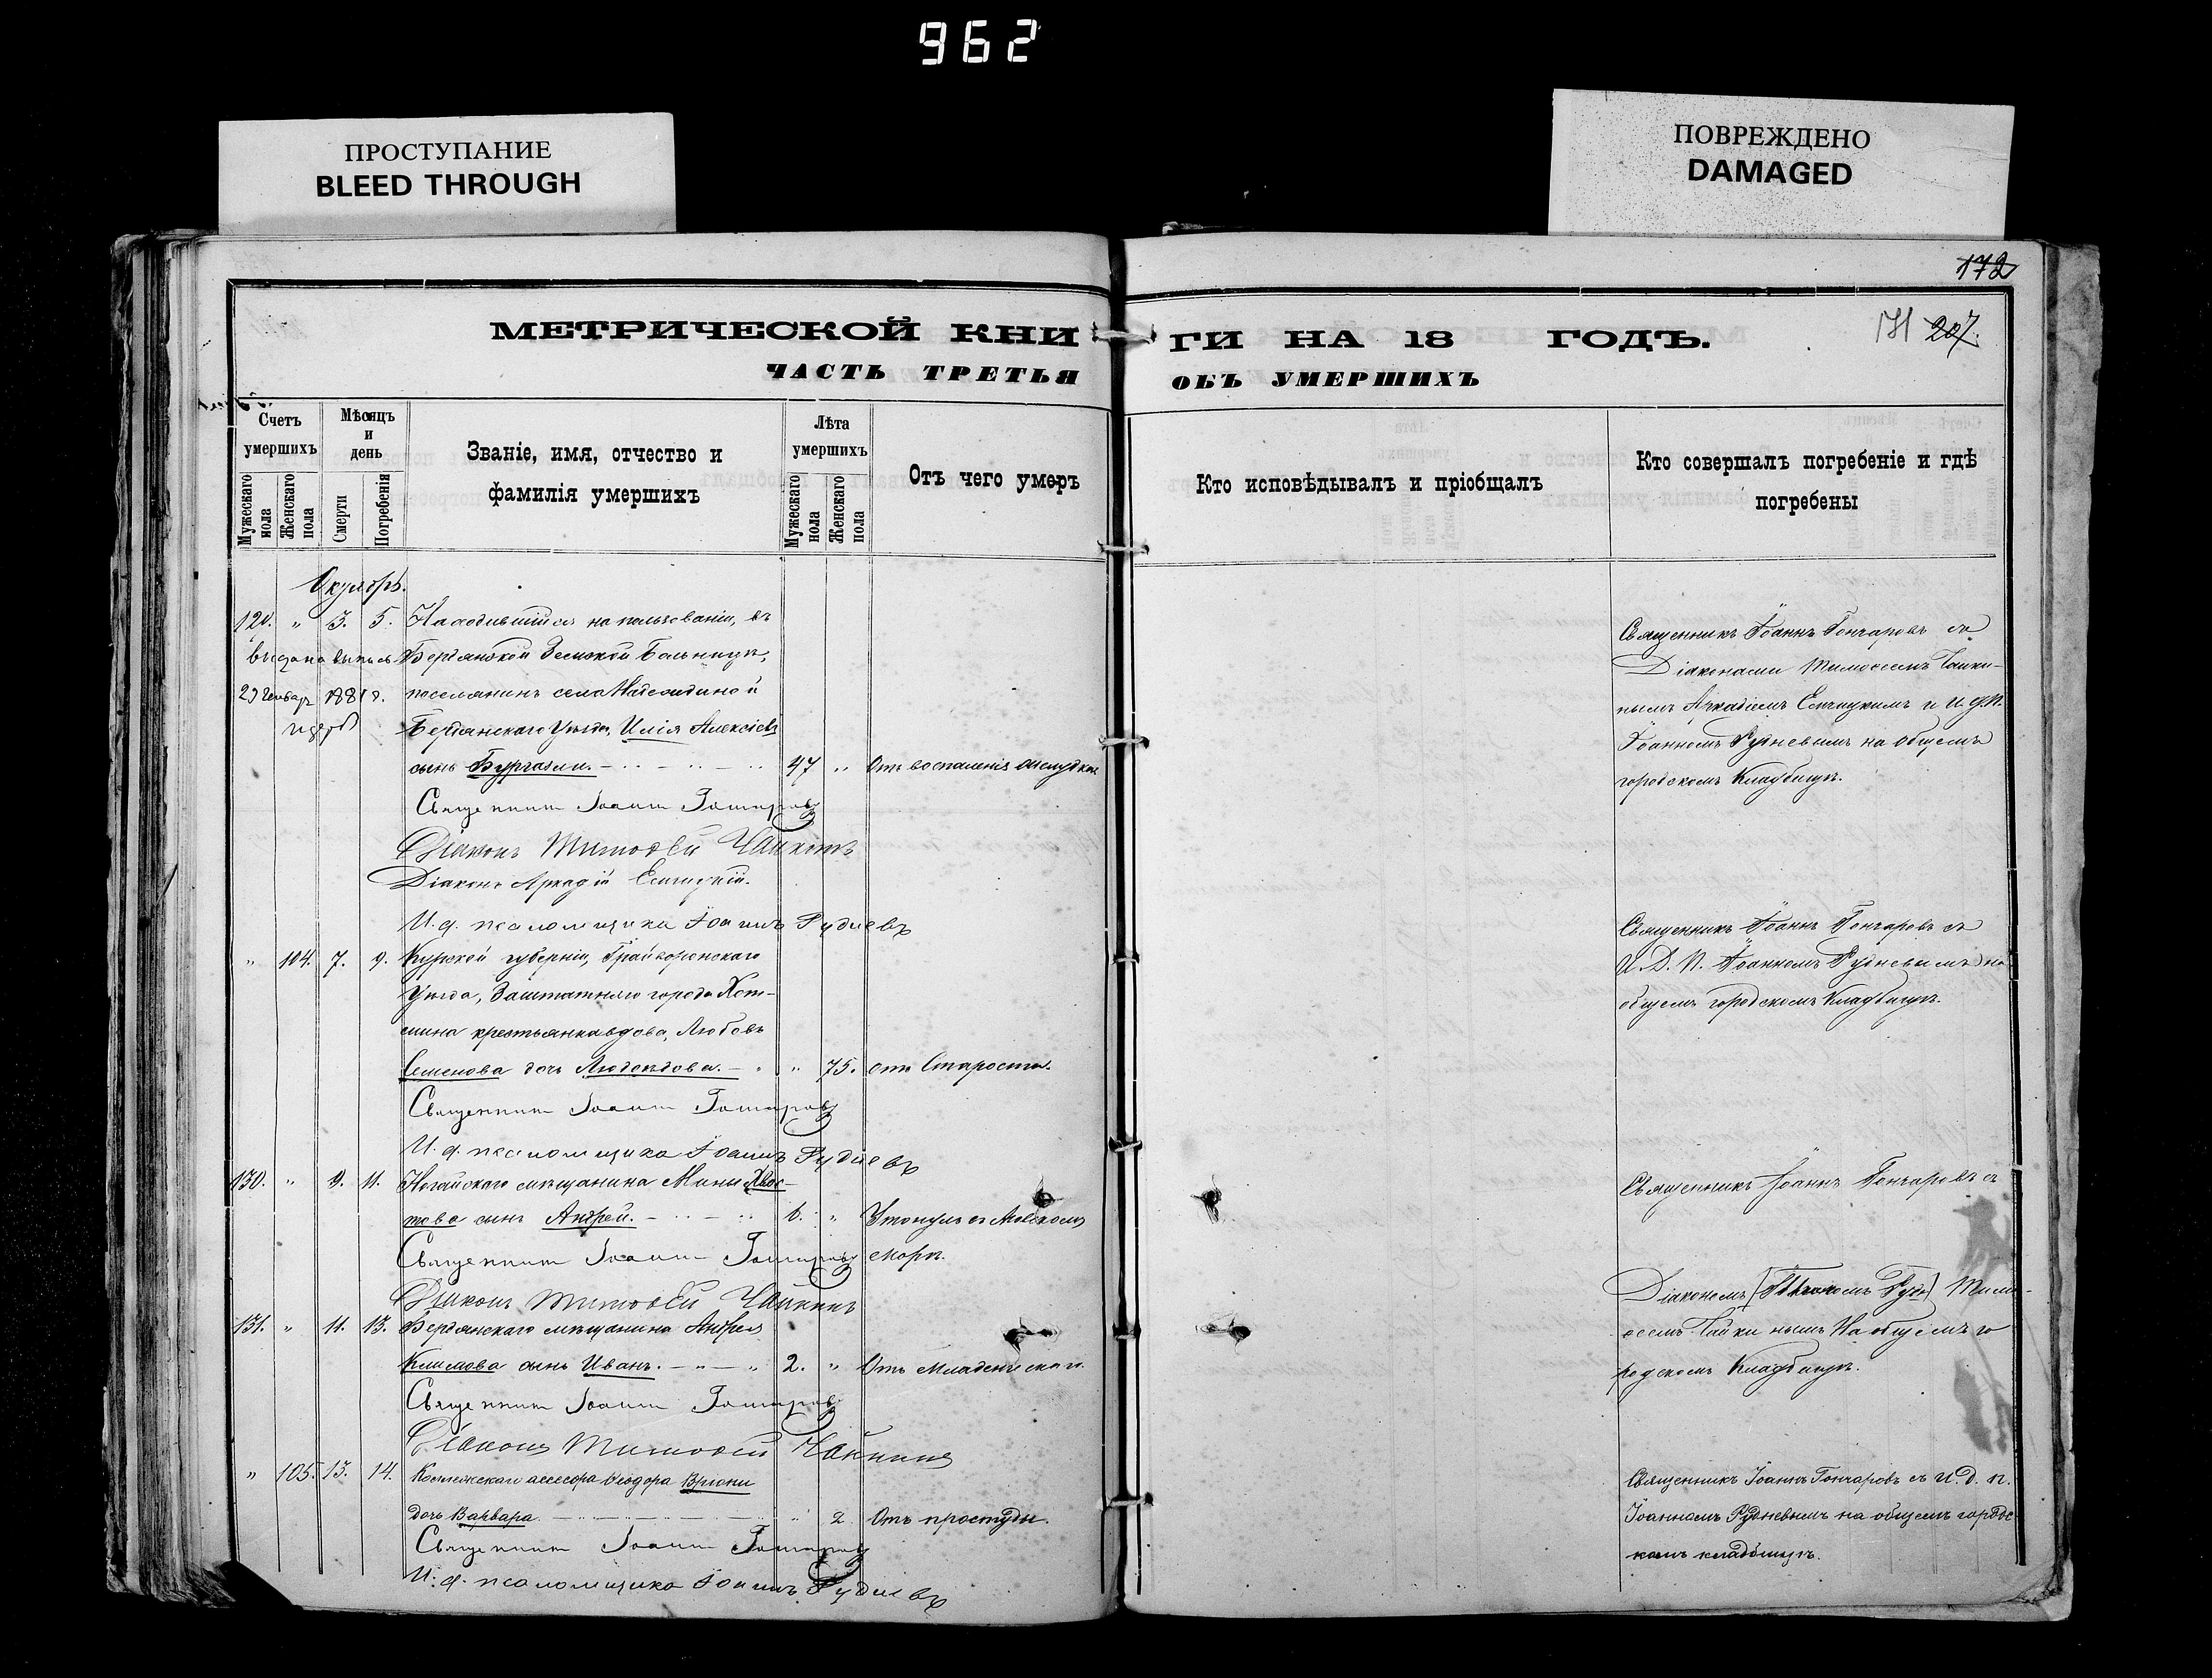 962
ПРОСТУПАНИЕ
BLEED THROUGH
ПОВРЕЖДЕНО
DAMAGED
172
МЕТРИЧЕСКОЙ КНИ
ГИ НА 18 ГОДЪ.
171 207.
ЧАСТЬ ТРЕТЬЯ
ОБЪ УМЕРШИХЪ
Счетъ умершихъ
Мужескаго пола
Женскаго пола
Мѣсяцъ и день
Смерти
Погребенія
Званіе, имя, отчество и
фамилія умершихъ
Лѣта умершихъ
Мужескаго пола
Женскаго пола
Отъ чего умеръ
Кто исповѣдывалъ и пріобщалъ
Кто совершалъ погребеніе и гдѣ
погребены
Октябрь.
129. " 3. 5. Находившійся на пользованіи, въ
выдана выпись Бердянской Земской Больницѣ,
29 Генвар 1881 г. поселянинъ села
Бердянскаго Уѣзда, Илія Алексіевъ
сынъ 47 " Отъ воспаленія желудка
Священникъ Іоаннъ Гончаровъ
Діаконъ Тимоѳей Чайкинъ
Діаконъ Аркадій
И. д. псаломщика Іоаннъ Рудневъ
Священникъ Іоаннъ Гончаровъ съ
Діаконами Тимоѳеемъ Чайки-
нымъ Аркадіемъ и И. д. П.
Іоанномъ Рудневымъ на общемъ
городскомъ Кладбищѣ.
" 104. 7. 9. Курской губерніи, Грайворонскаго
Уѣзда, Заштатнаго города Хот-
мина крестьянка вдова, Любовь
Семенова дочь " 75. отъ Старости.
Священникъ Іоаннъ Гончаровъ
И. д. псаломщика Іоаннъ Рудневъ
Священникъ Іоаннъ Гончаровъ съ
И. Д. П. Іоанномъ Рудневымъ на
общемъ городскомъ Кладбищѣ.
130. " 9. 11. Ногайскаго мѣщанина Мины Хвос-
това сынъ Андрей. 6. " Утонулъ въ Азовскомъ
морѣ.
Священникъ Іоаннъ Гончаровъ
Діаконъ Тимоѳей Чайкинъ
Священникъ Іоаннъ Гончаровъ съ
Діакономъ Тимо-
ѳеемъ Чайкинымъ На общемъ го
родскомъ Кладбищѣ.
131. " 11. 13. Бердянскаго мѣщанина Андрея
Климова сынъ Иванъ. 2. " Отъ Младенческаго.
Священникъ Іоаннъ Гончаровъ
Діаконъ Тимоѳей Чайкинъ
" 105. 13. 14. Коллежскаго ассесора Ѳеодора Вріони
дочь Варвара. " 2 Отъ простуды.
Священникъ Іоаннъ Гончаровъ
И. д. псаломщика Іоаннъ Рудневъ
Священникъ Іоаннъ Гончаровъ съ И. Д. п.
Іоанномъ Рудневымъ на общемъ городс-
комъ кладбищѣ.